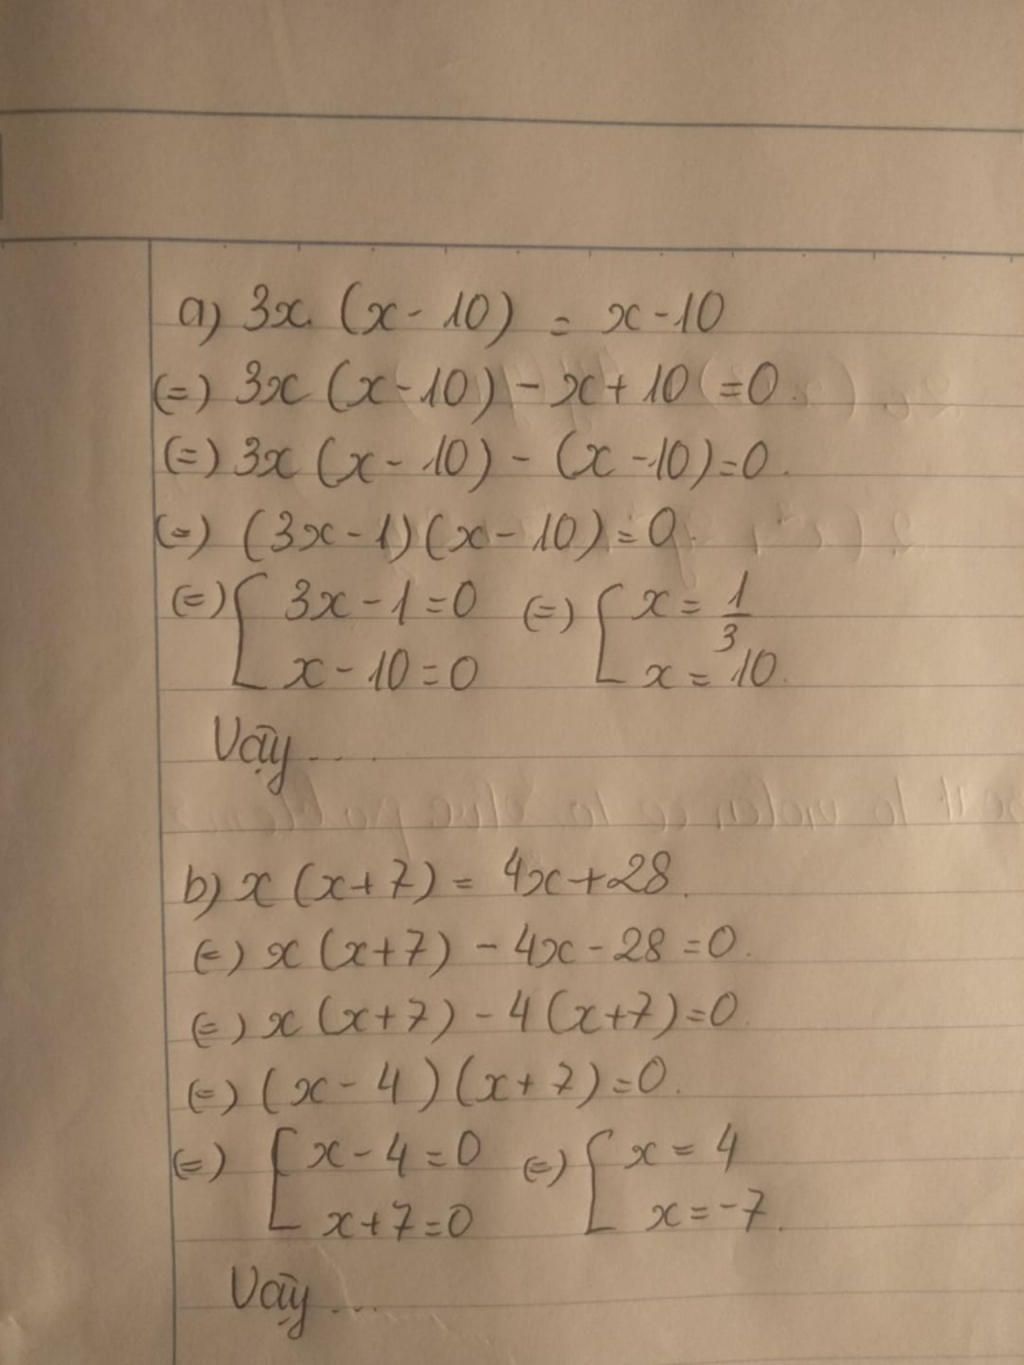 a) 3x. (x - 10) = x - 10
(=) 3x (x - 10) - x + 10 = 0.
(=) 3x (x - 10) - (x - 10) = 0.
(=) (3x - 1) (x - 10) = 0.
(=) [ 3x - 1 = 0 (=) [ x = 1/3
x - 10 = 0 x = 10.
Vậy ....
b) x (x + 7) = 4x + 28.
(=) x (x + 7) - 4x - 28 = 0.
(=) x (x + 7) - 4 (x + 7) = 0.
(=) (x - 4) (x + 7) = 0.
(=) [ x - 4 = 0 (=) [ x = 4
x + 7 = 0 x = -7.
Vậy ....